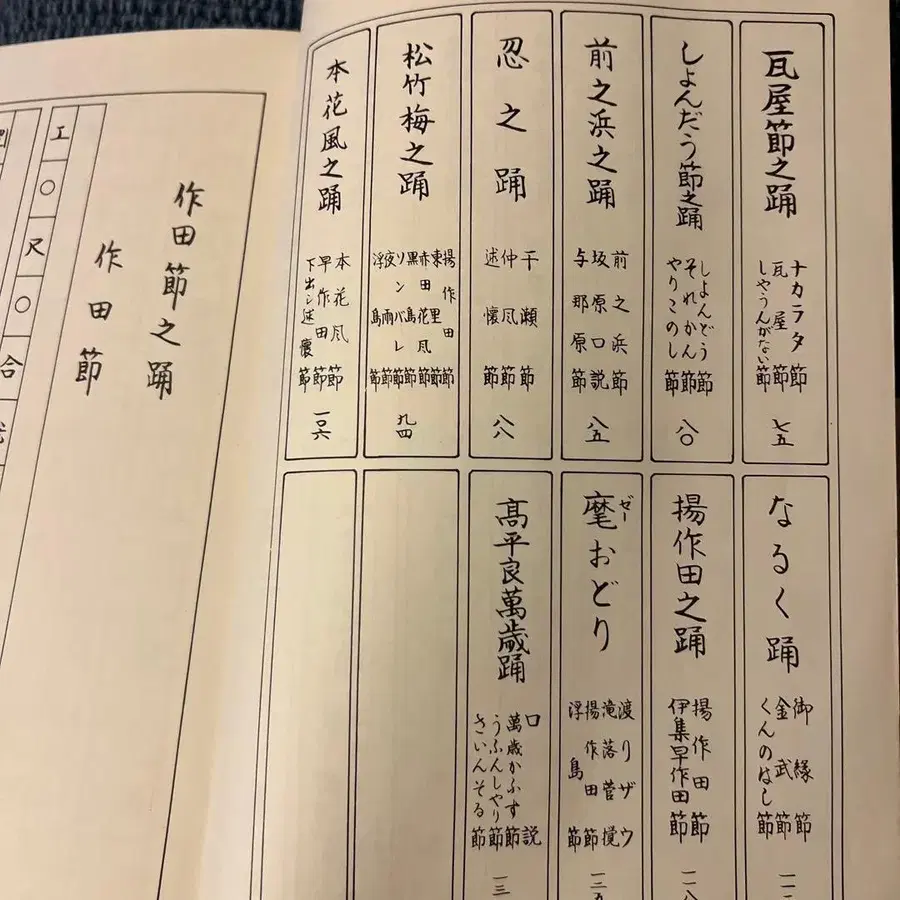 瓦屋節之踊
ナカラタ節
瓦屋節
しやうんがない節
七五
しよんだう節之踊
しよんどう節
それかん節
やりこのし節
八〇
前之浜之踊
前之浜節
坂原口説
与那原節
八五
忍之踊
干瀬節
仲風節
述懐節
八八
松竹梅之踊
揚作田節
東里節
赤田花風節
黒島節
ソンバレ節
夜雨節
浮島節
九四
本花風之踊
本花風節
早作田節
下出シ述懐節
一〇六
なるく踊
御縁節
金武節
くんのはし節
揚作田之踊
揚作田節
伊集早作田節
麾おどり
ゼー
渡りザウ
滝落菅撹
揚作田節
浮島節
髙平良萬歳踊
口説
萬歳かふす節
うふんしやり節
さいんそる節
作田節之踊
作田節
工〇尺〇合